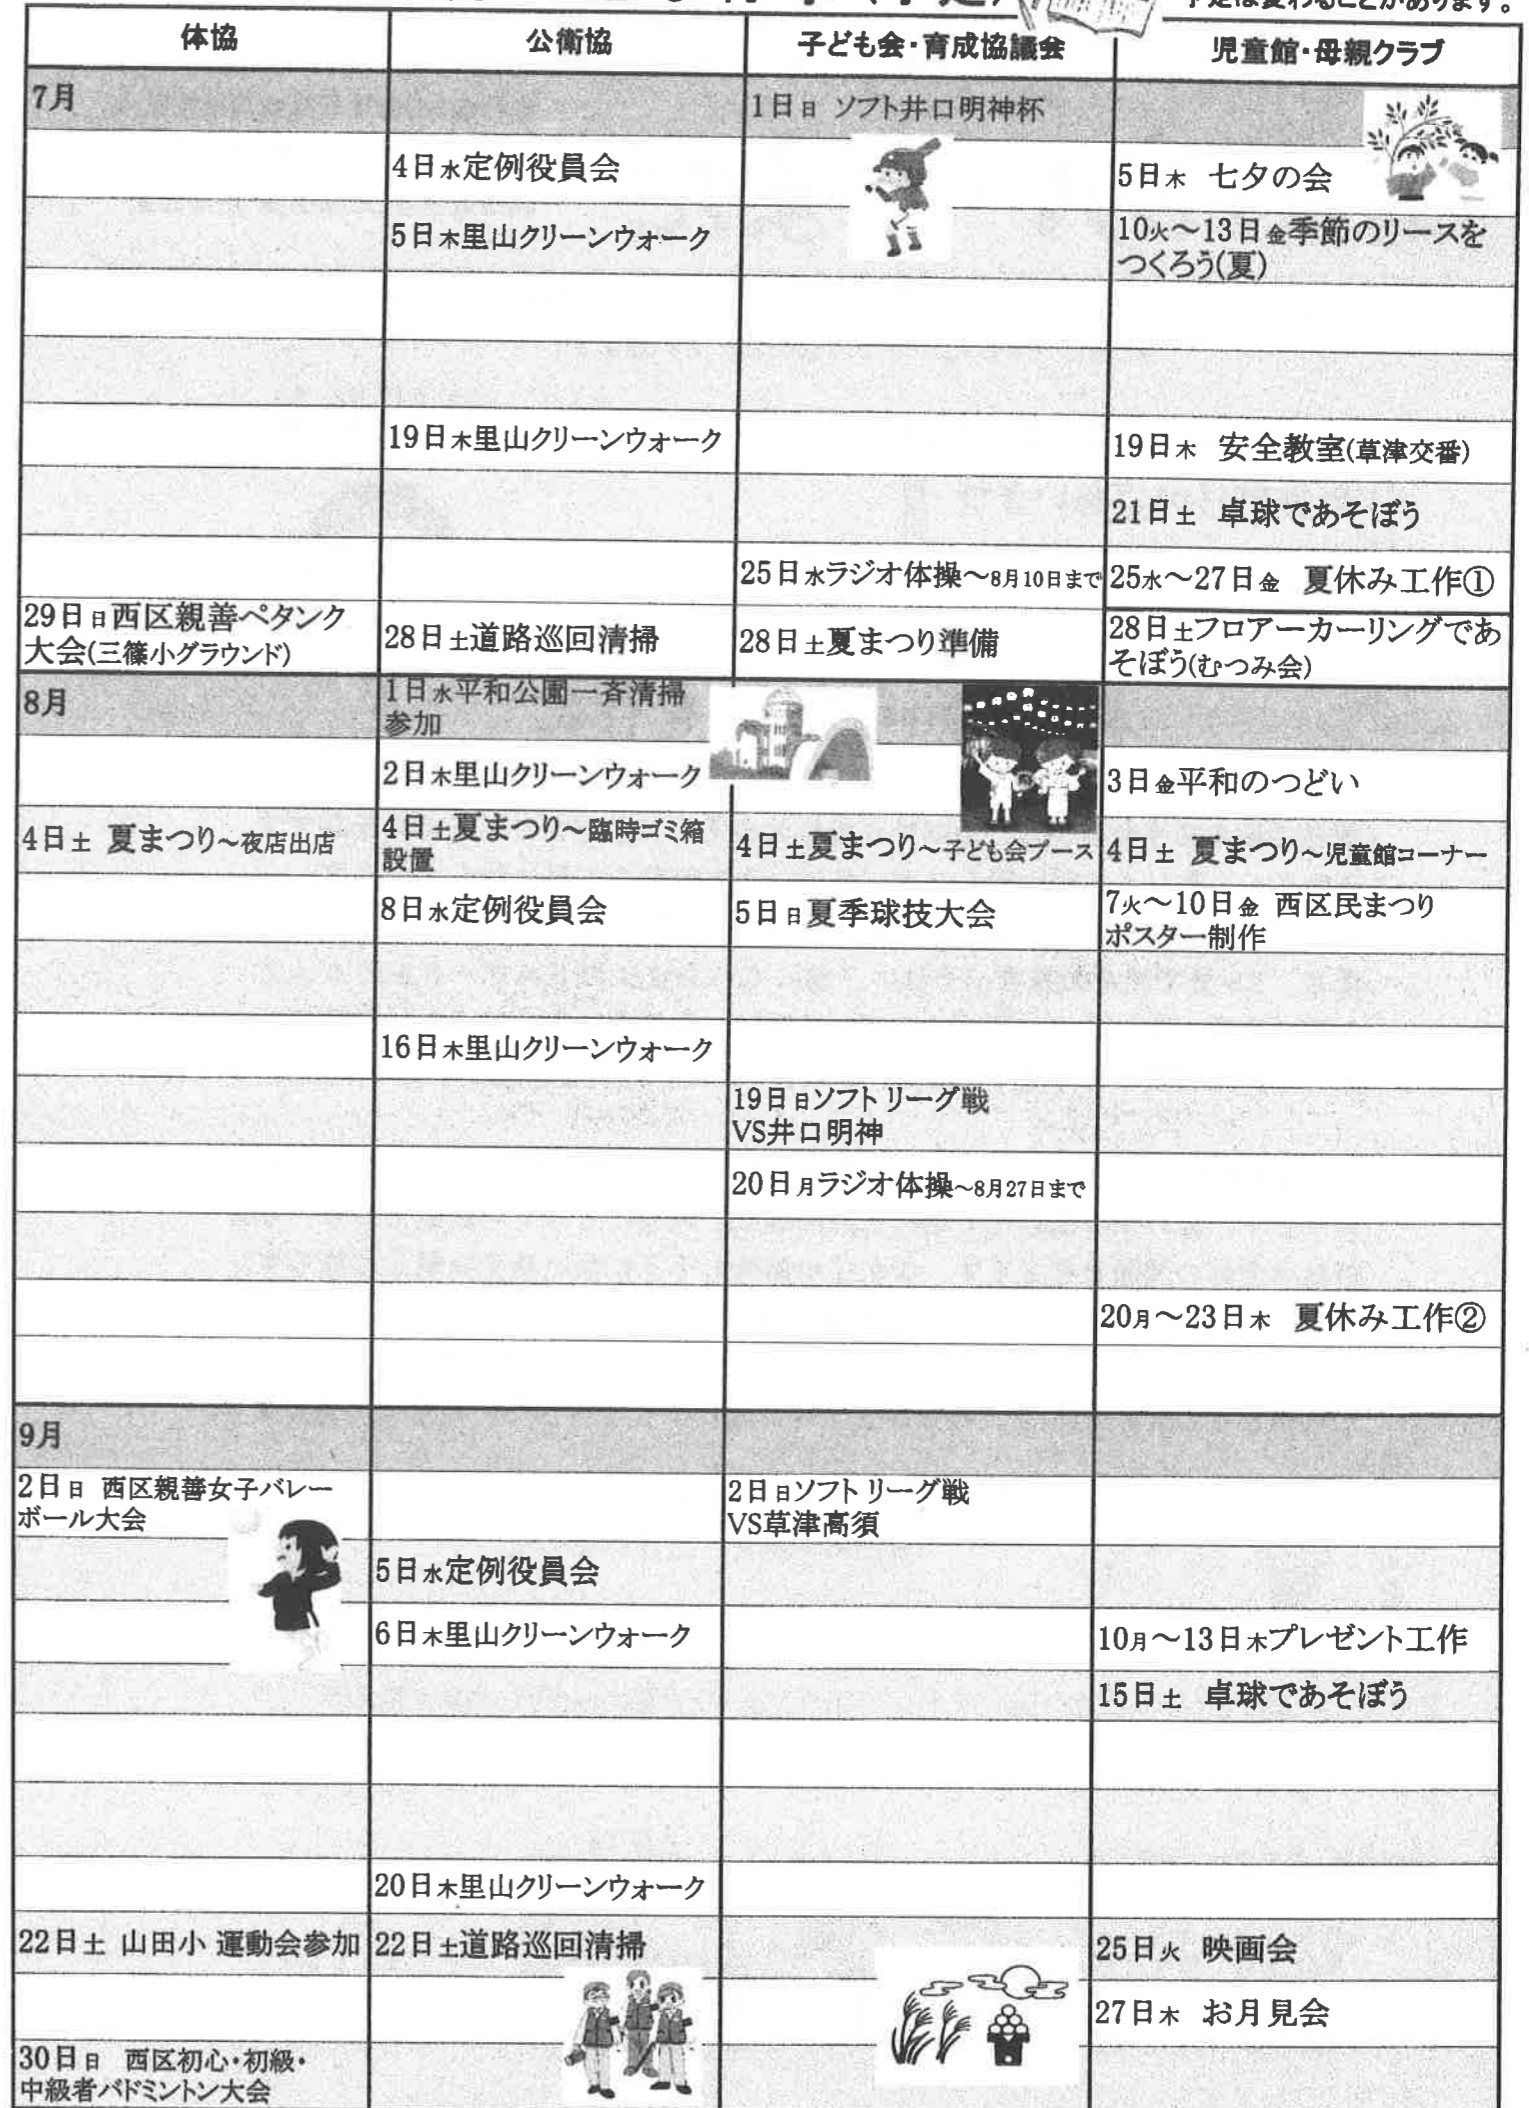 予定は変わることがあります。
体協 公衛協 子ども会・育成協議会 児童館・母親クラブ
7月 1日日 ソフト井口明神杯
4日水定例役員会 5日木 七夕の会
5日木里山クリーンウォーク 10火～13日金季節のリースを
つくろう(夏)
19日木里山クリーンウォーク 19日木 安全教室(草津交番)
21日土 卓球であそぼう
25日水ラジオ体操～8月10日まで 25水～27日金 夏休み工作①
29日日西区親善ペタンク
大会(三篠小グラウンド)
28日土道路巡回清掃 28日土夏まつり準備
28日土フロアーカーリングであ
そぼう(むつみ会)
8月
1日水平和公園一斉清掃
参加
2日木里山クリーンウォーク 3日金平和のつどい
4日土 夏まつり～夜店出店
4日土夏まつり～臨時ゴミ箱
設置
4日土夏まつり～子ども会ブース 4日土 夏まつり～児童館コーナー
8日水定例役員会 5日日夏季球技大会
7火～10日金 西区民まつり
ポスター制作
16日木里山クリーンウォーク
19日日ソフトリーグ戦
VS井口明神
20日月ラジオ体操～8月27日まで
20月～23日木 夏休み工作②
9月
2日日 西区親善女子バレー
ボール大会
2日日ソフトリーグ戦
VS草津高須
5日水定例役員会
6日木里山クリーンウォーク 10月～13日木プレゼント工作
15日土 卓球であそぼう
20日木里山クリーンウォーク
22日土 山田小 運動会参加 22日土道路巡回清掃 25日火 映画会
27日木 お月見会
30日日 西区初心・初級・
中級者バドミントン大会